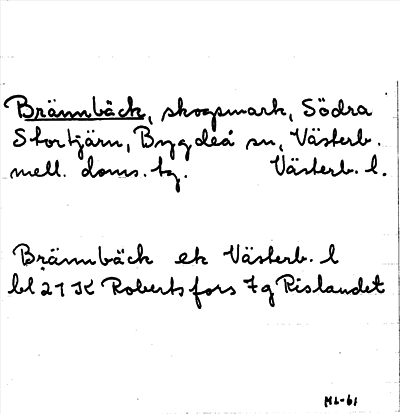 Brännbäck, skogsmark, Södra
Stortjärn, Bygdeå sn, Västerb.
mell. doms. tg. Västerb. l.
Brännbäck ek Västerb. l
bl 21 K Robertsfors 7g Rislandet